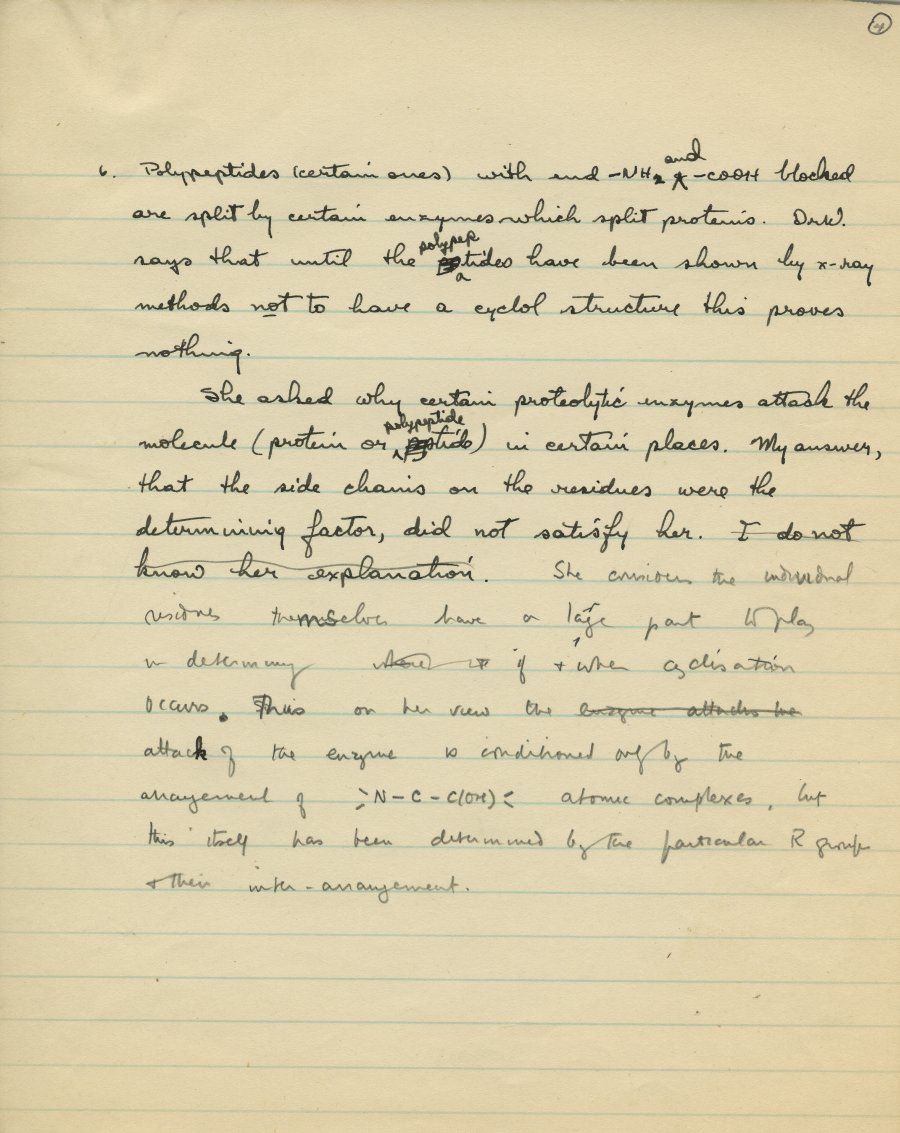 4
6. Polypeptides (certain ones) with end -NH2 and -COOH blocked
are split by certain enzymes which split proteins. Dr W.
says that until the polypeptides have been shown by x-ray
methods not to have a cyclol structure this proves
nothing.
She asked why certain proteolytic enzymes attack the
molecule (protein or polypeptide) in certain places. My answer,
that the side chains on the residues were the
determining factor, did not satisfy her. I do not
know her explanation. She considers the individual
residues themselves have a large part to play
in determining if & when cyclisation
occurs. Thus on her view the enzyme attacks the
attack of the enzyme is conditioned only by the
arrangement of >N-C-C(OH)< atomic complexes, but
this itself has been determined by the particular R groups
& their inter-arrangement.